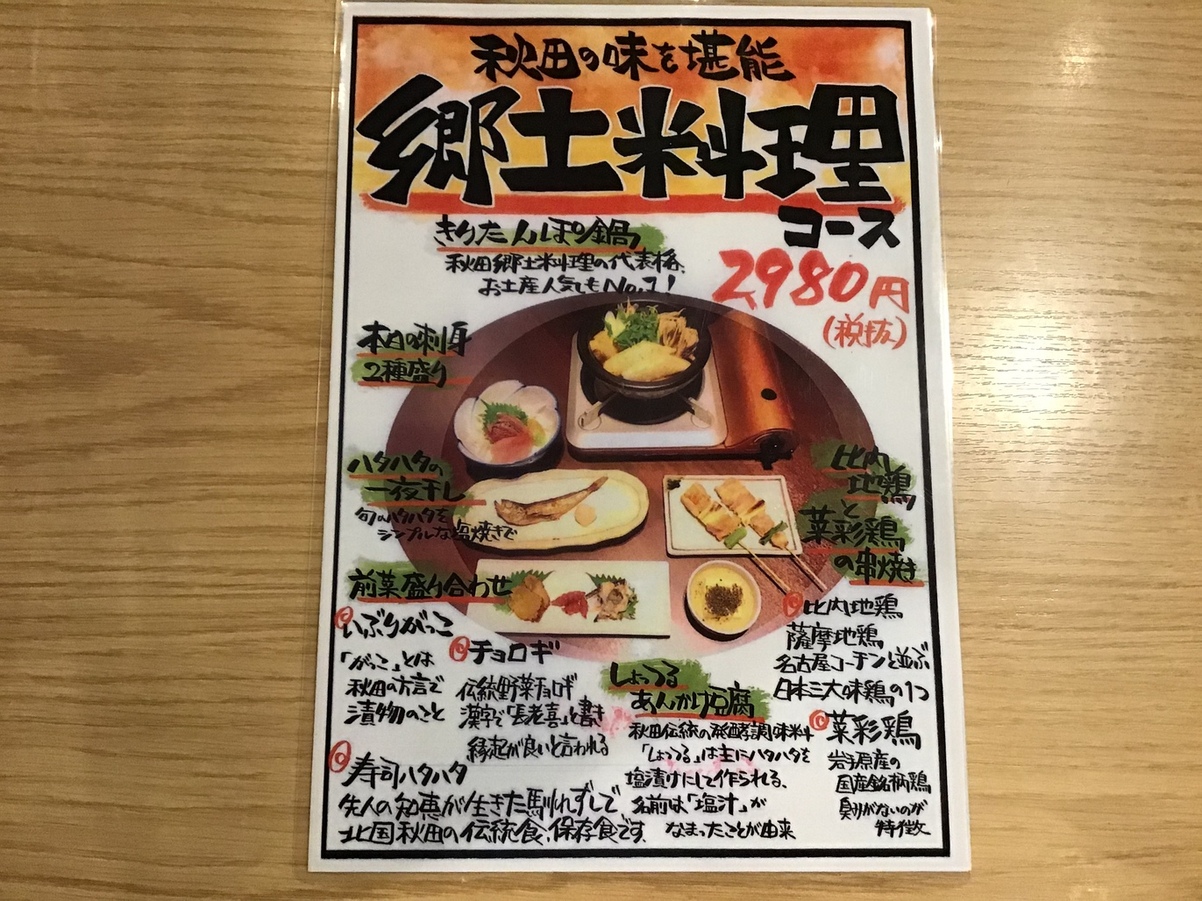 秋田の味を堪能
郷土料理
コース
2980円
(税抜)
きりたんぽ鍋
秋田郷土料理の代表格、
お土産人気もNo.1!
本日の刺身
2種盛り
ハタハタの
一夜干し
旬のハタハタを
シンプルな塩焼きで
比内
地鶏
と
菜彩鶏
の串焼き
前菜盛り合わせ
いぶりがっこ
「がっこ」とは
秋田の方言で
漬物のこと
チョロギ
伝統野菜チョロギ
漢字で「長老喜」と書き
縁起が良いと言われる
寿司ハタハタ
先人の知恵が生きた馴れずしで
北国秋田の伝統食、保存食です。
しょっつる
あんかけ豆腐
秋田伝統の発酵調味料
「しょっつる」は主にハタハタを
塩漬けにして作られる、
名前は「塩汁」が
なまったことが由来
比内地鶏
薩摩地鶏
名古屋コーチンと並ぶ
日本三大味鶏の1つ
菜彩鶏
岩手原産の
国産銘柄鶏
臭みがないのが
特徴